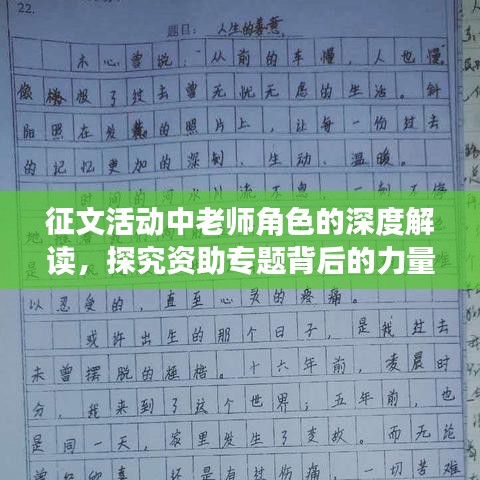 22.
题目：人生的善意
木心曾说：从前的车慢，人也慢
像极了过去曾无忧无虑的生活。斜
阳照在发黄的照片上，让每一份过去
的记忆更加的深刻、生动、温暖。
征文活动中老师角色的深度解
读，探究资助专题背后的力量
以忍受的，直至心灵的疼痛。
或许出生的那个日子，是我过去
未曾摆脱的桎梏。十六年前，凌晨时
分，我来到了这个世界；五年前，也
是同一天，家里发生了变故。而无论
一切苦难